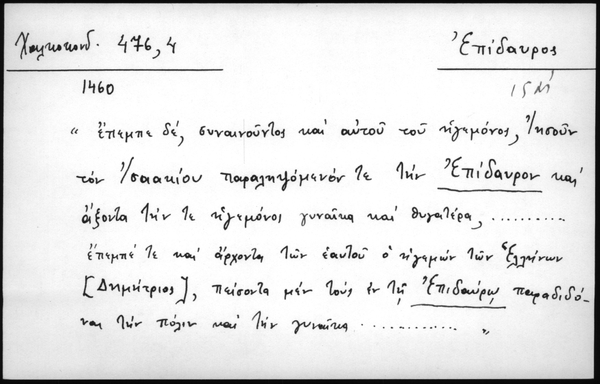 Χαλκοκονδ. 476,4
Ἐπίδαυρος
1460
15 Μ
" ἔπεμπε δέ, συναινοῦντος καὶ αὐτοῦ τοῦ ἡγεμόνος, Ἰησοῦν
τὸν Ἰσαακίου παραληψόμενόν τε τὴν Ἐπίδαυρον καὶ
ἄξοντα τήν τε ἡγεμόνος γυναῖκα καὶ θυγατέρα, ............
ἔπεμπέ τε καὶ ἄρχοντα τῶν ἑαυτοῦ ὁ ἡγεμὼν τῶν Ἑλλήνων
[Δημήτριος], πείσοντα μὲν τοὺς ἐν τῇ Ἐπιδαύρῳ παραδιδό-
ναι τὴν πόλιν καὶ τὴν γυναῖκα ................ "